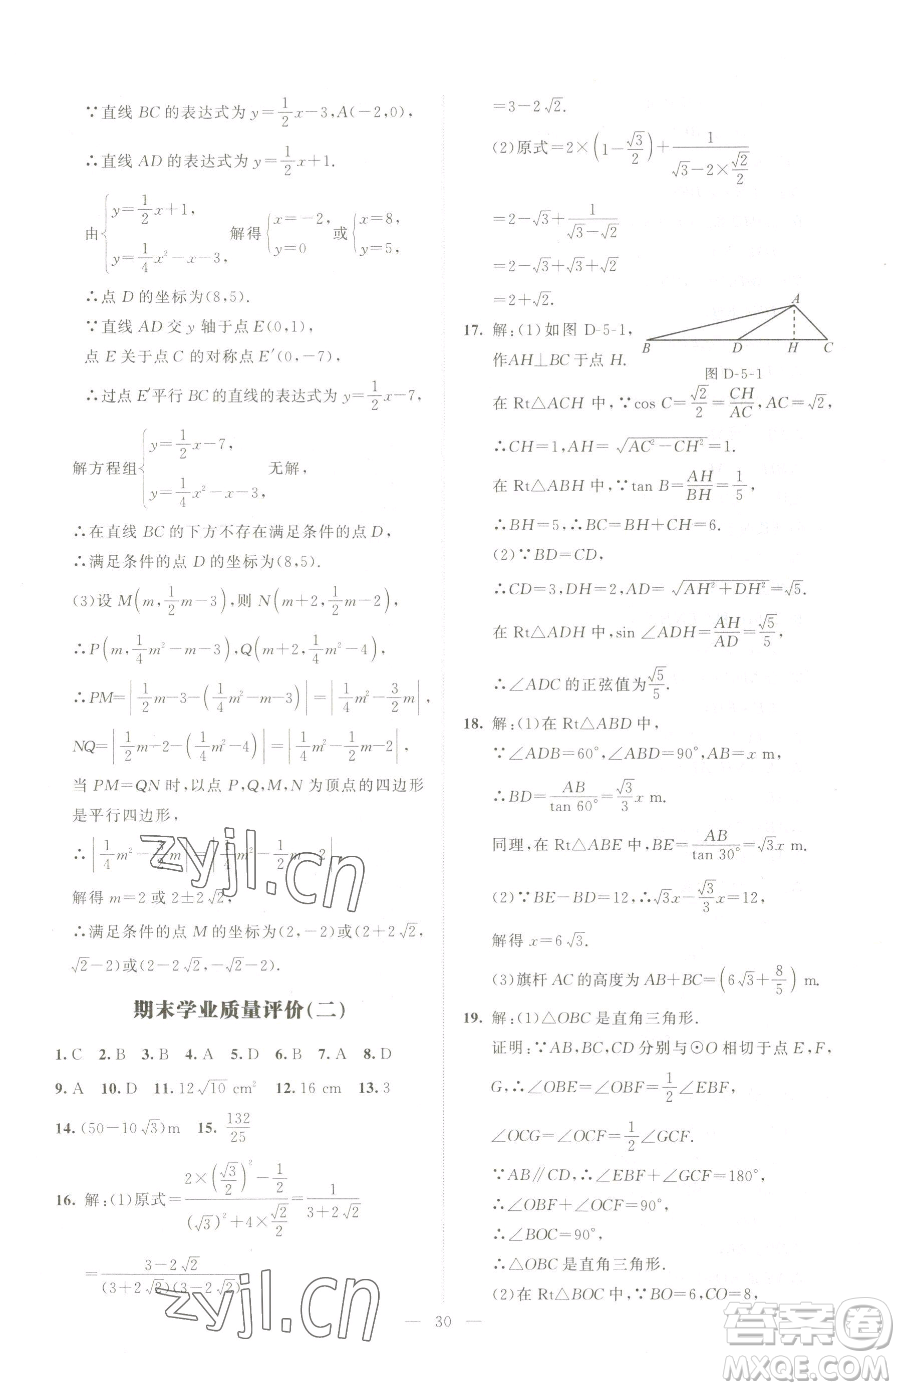 ∵直线 BC 的表达式为 y=1/2x-3,A(-2,0),
∴直线 AD 的表达式为 y=1/2x+1.
由{y=1/2x+1, y=1/4x²-x-3, 解得{x=-2, y=0 或{x=8, y=5,
∴点 D 的坐标为(8,5).
∵直线 AD 交 y 轴于点 E(0,1),
点 E 关于点 C 的对称点 E′(0,-7),
∴过点 E′平行 BC 的直线的表达式为 y=1/2x-7,
解方程组{y=1/2x-7, y=1/4x²-x-3, 无解,
∴在直线 BC 的下方不存在满足条件的点 D.
∴满足条件的点 D 的坐标为(8,5).
(3)设 M(m,1/2m-3),则 N(m+2,1/2m-2),
∴P(m,1/4m²-m-3),Q(m+2,1/4m²-4),
∴PM=|1/2m-3-(1/4m²-m-3)|=|1/4m²-3/2m|,
NQ=|1/2m-2-(1/4m²-4)|=|1/4m²-1/2m-2|,
当 PM=QN 时,以点 P,Q,M,N 为顶点的四边形
是平行四边形,
解得 m=2 或 2±2√2,
∴满足条件的点 M 的坐标为(2,-2)或(2+2√2,
√2-2)或(2-2√2,-√2-2).
期末学业质量评价(二)
1. C 2. B 3. B 4. A 5. D 6. B 7. A 8. D
9. A 10. D 11. 12√10 cm² 12. 16 cm 13. 3
14. (50-10√3)m 15. 132/25
16. 解:(1)原式=(2×(√3/2)²-1/2)/((√3)²+4×√2/2)=1/(3+2√2)
=(3-2√2)/((3+2√2)(3-2√2))
=3-2√2.
(2)原式=2×(1-√3/2)+1/(√3-2×√2/2)
=2-√3+1/(√3-√2)
=2-√3+√3+√2
=2+√2.
17. 解:(1)如图 D-5-1,
作AH⊥BC 于点 H.
A
B D H C
图 D-5-1
在 Rt△ACH 中,∵cos C=√2/2=CH/AC,AC=√2,
∴CH=1,AH=√(AC²-CH²)=1.
在 Rt△ABH 中,∵tan B=AH/BH=1/5,
∴BH=5,∴BC=BH+CH=6.
(2)∵BD=CD,
∴CD=3,DH=2,AD=√(AH²+DH²)=√5.
在 Rt△ADH 中,sin ∠ADH=AH/AD=√5/5,
∴∠ADC 的正弦值为√5/5.
18. 解:(1)在 Rt△ABD 中,
∵∠ADB=60°,∠ABD=90°,AB=x m,
∴BD=AB/tan 60°=√3/3x m.
同理,在 Rt△ABE 中,BE=AB/tan 30°=√3x m.
(2)∵BE-BD=12,∴√3x-√3/3x=12,
解得 x=6√3.
(3)旗杆 AC 的高度为 AB+BC=(6√3+8/5) m.
19. 解:(1)△OBC 是直角三角形.
证明:∵AB,BC,CD 分别与⊙O 相切于点 E,F,
G,∴∠OBE=∠OBF=1/2∠EBF,
∠OCG=∠OCF=1/2∠GCF.
∵AB∥CD,∴∠EBF+∠GCF=180°,
∴∠OBF+∠OCF=90°,
∴∠BOC=90°,
∴△OBC 是直角三角形.
(2)在 Rt△BOC 中,∵BO=6,CO=8,
— 30 —
zyjl.cn
zyjl.cn
答案圈
MXQE.COM